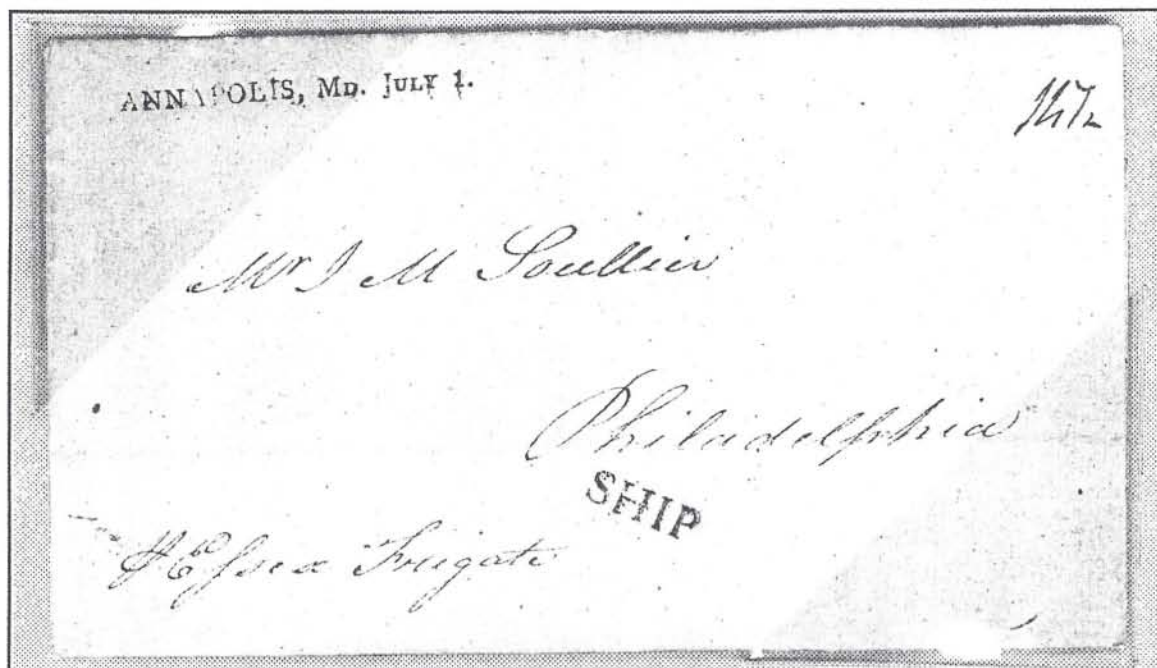 ANNAPOLIS, MD. JULY 1.
Mr J M Soullier
Philadelphia
SHIP
Essex Frigate